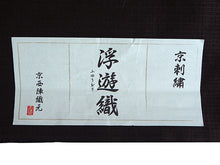 京刺繍
浮遊織
ふゆうおり
京西陣織元